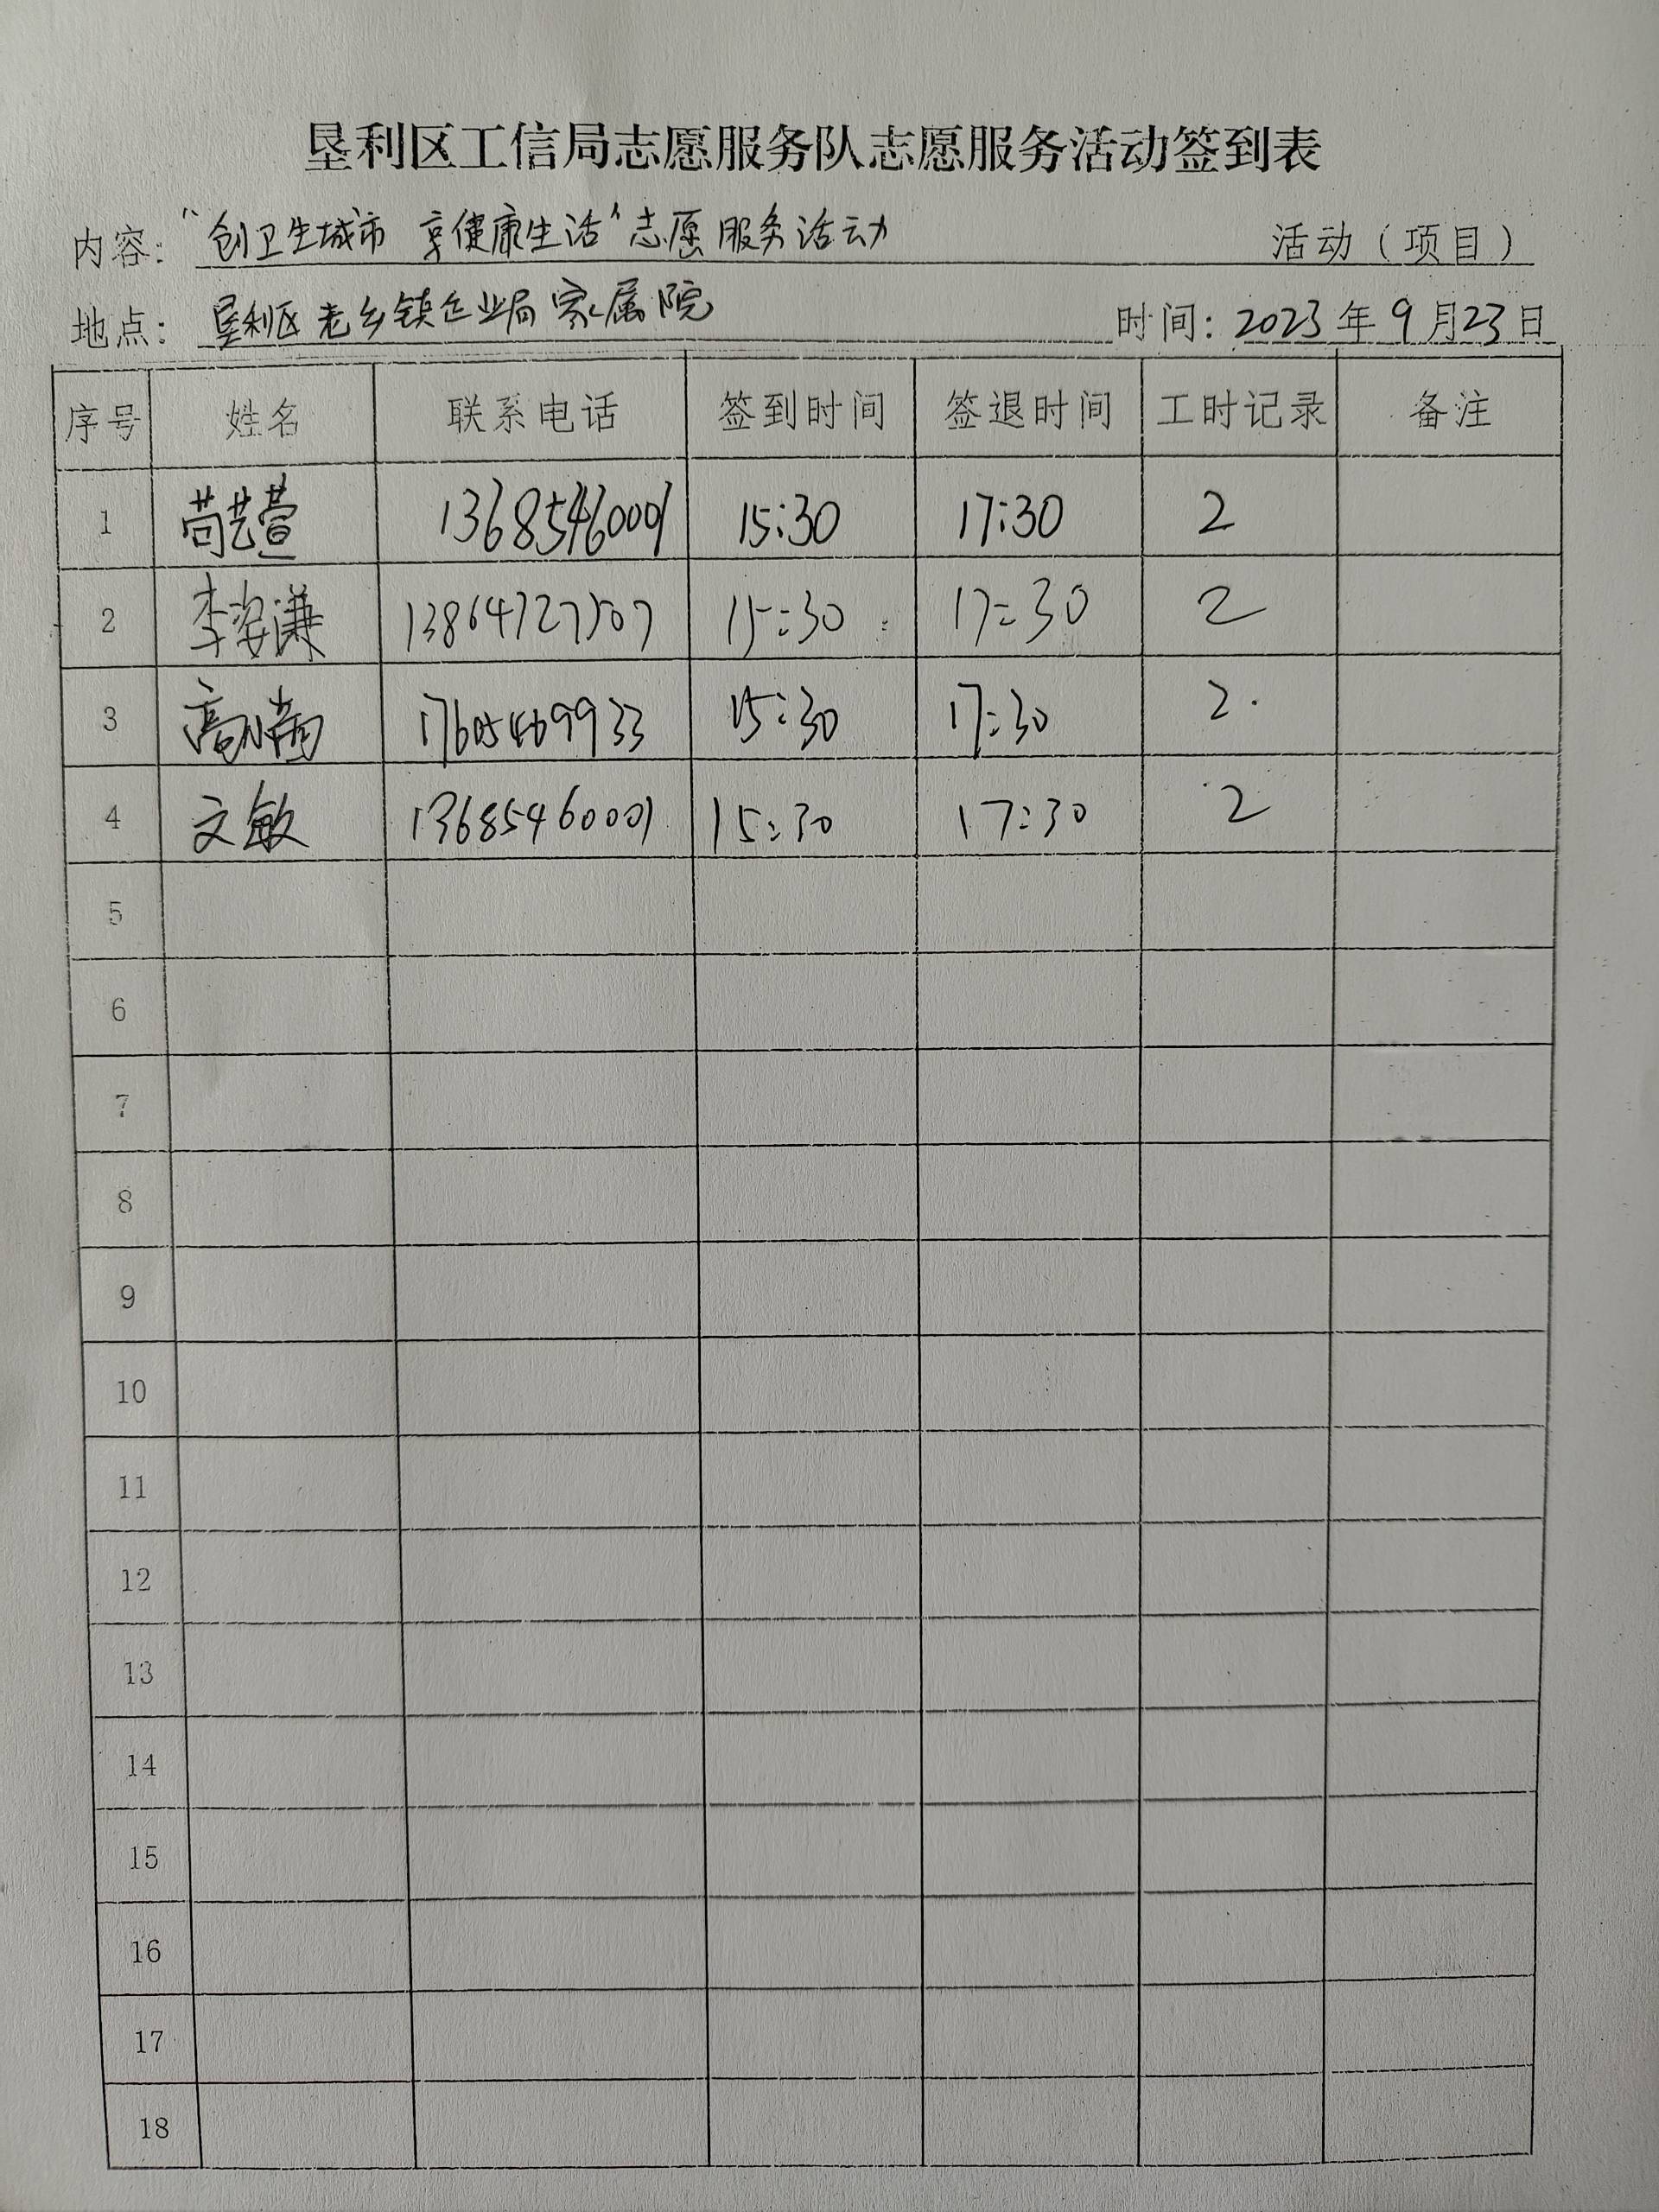 垦利区工信局志愿服务队志愿服务活动签到表
内容：“创卫生城市 享健康生活”志愿服务活动 活动（项目）
地点：垦利区老乡镇企业局家属院 时间：2023年9月23日
序号 姓名 联系电话 签到时间 签退时间 工时记录 备注
1 苘艺萱 13685460001 15:30 17:30 2
2 李姿谦 13864727507 15:30 17:30 2
3 17605469933 15:30 17:30 2
4 文敏 13685460001 15:30 17:30 2
5
6
7
8
9
10
11
12
13
14
15
16
17
18